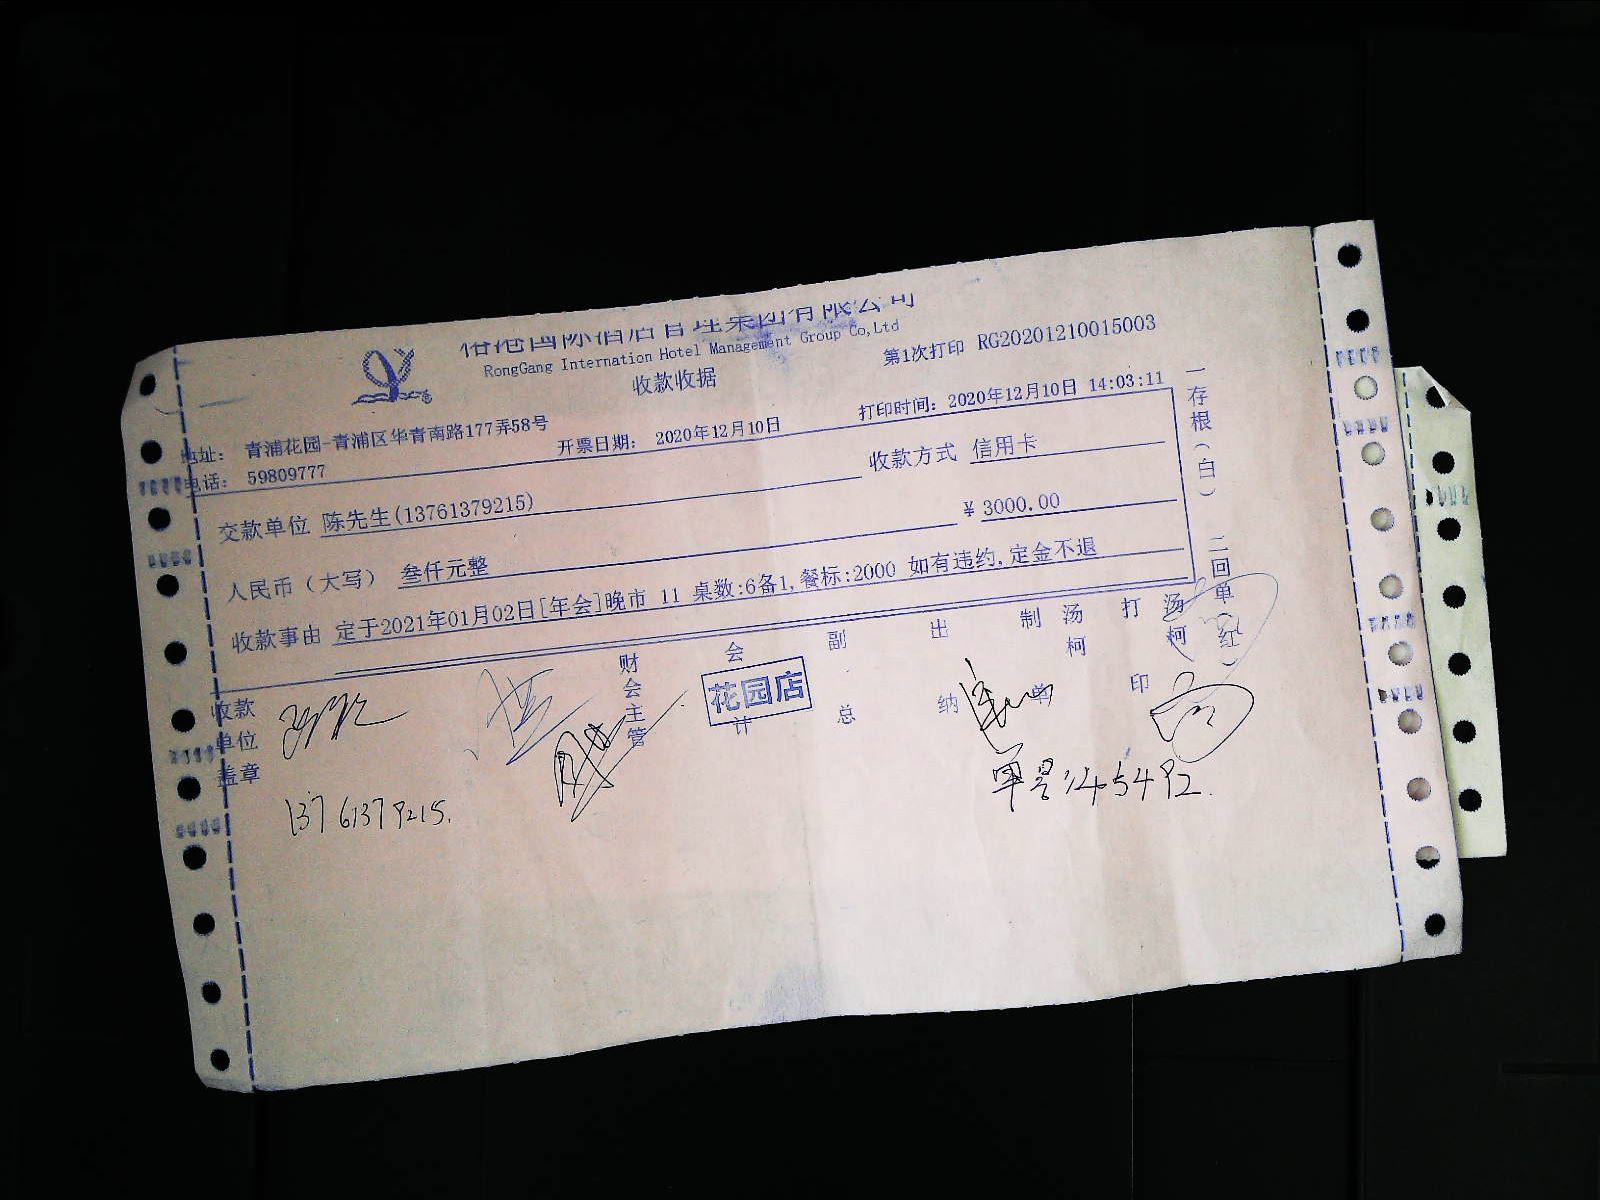 国际酒店管理集团有限公司
RongGang Internation Hotel Management Group Co,Ltd
收款收据
第1次打印 RG20201210015003
地址： 青浦花园-青浦区华青南路177弄58号
电话： 59809777
开票日期： 2020年12月10日
打印时间：2020年12月10日 14:03:11
交款单位 陈先生(13761379215)
收款方式 信用卡
人民币（大写） 叁仟元整
¥ 3000.00
收款事由 定于2021年01月02日[年会]晚市 11 桌数:6备1,餐标:2000 如有违约,定金不退
一存根（白） 二回单（红）
收款单位盖章
财会主管
会计
副总
出纳
制单
汤柯
打印
汤柯
花园店
13761379215.
单号145492.